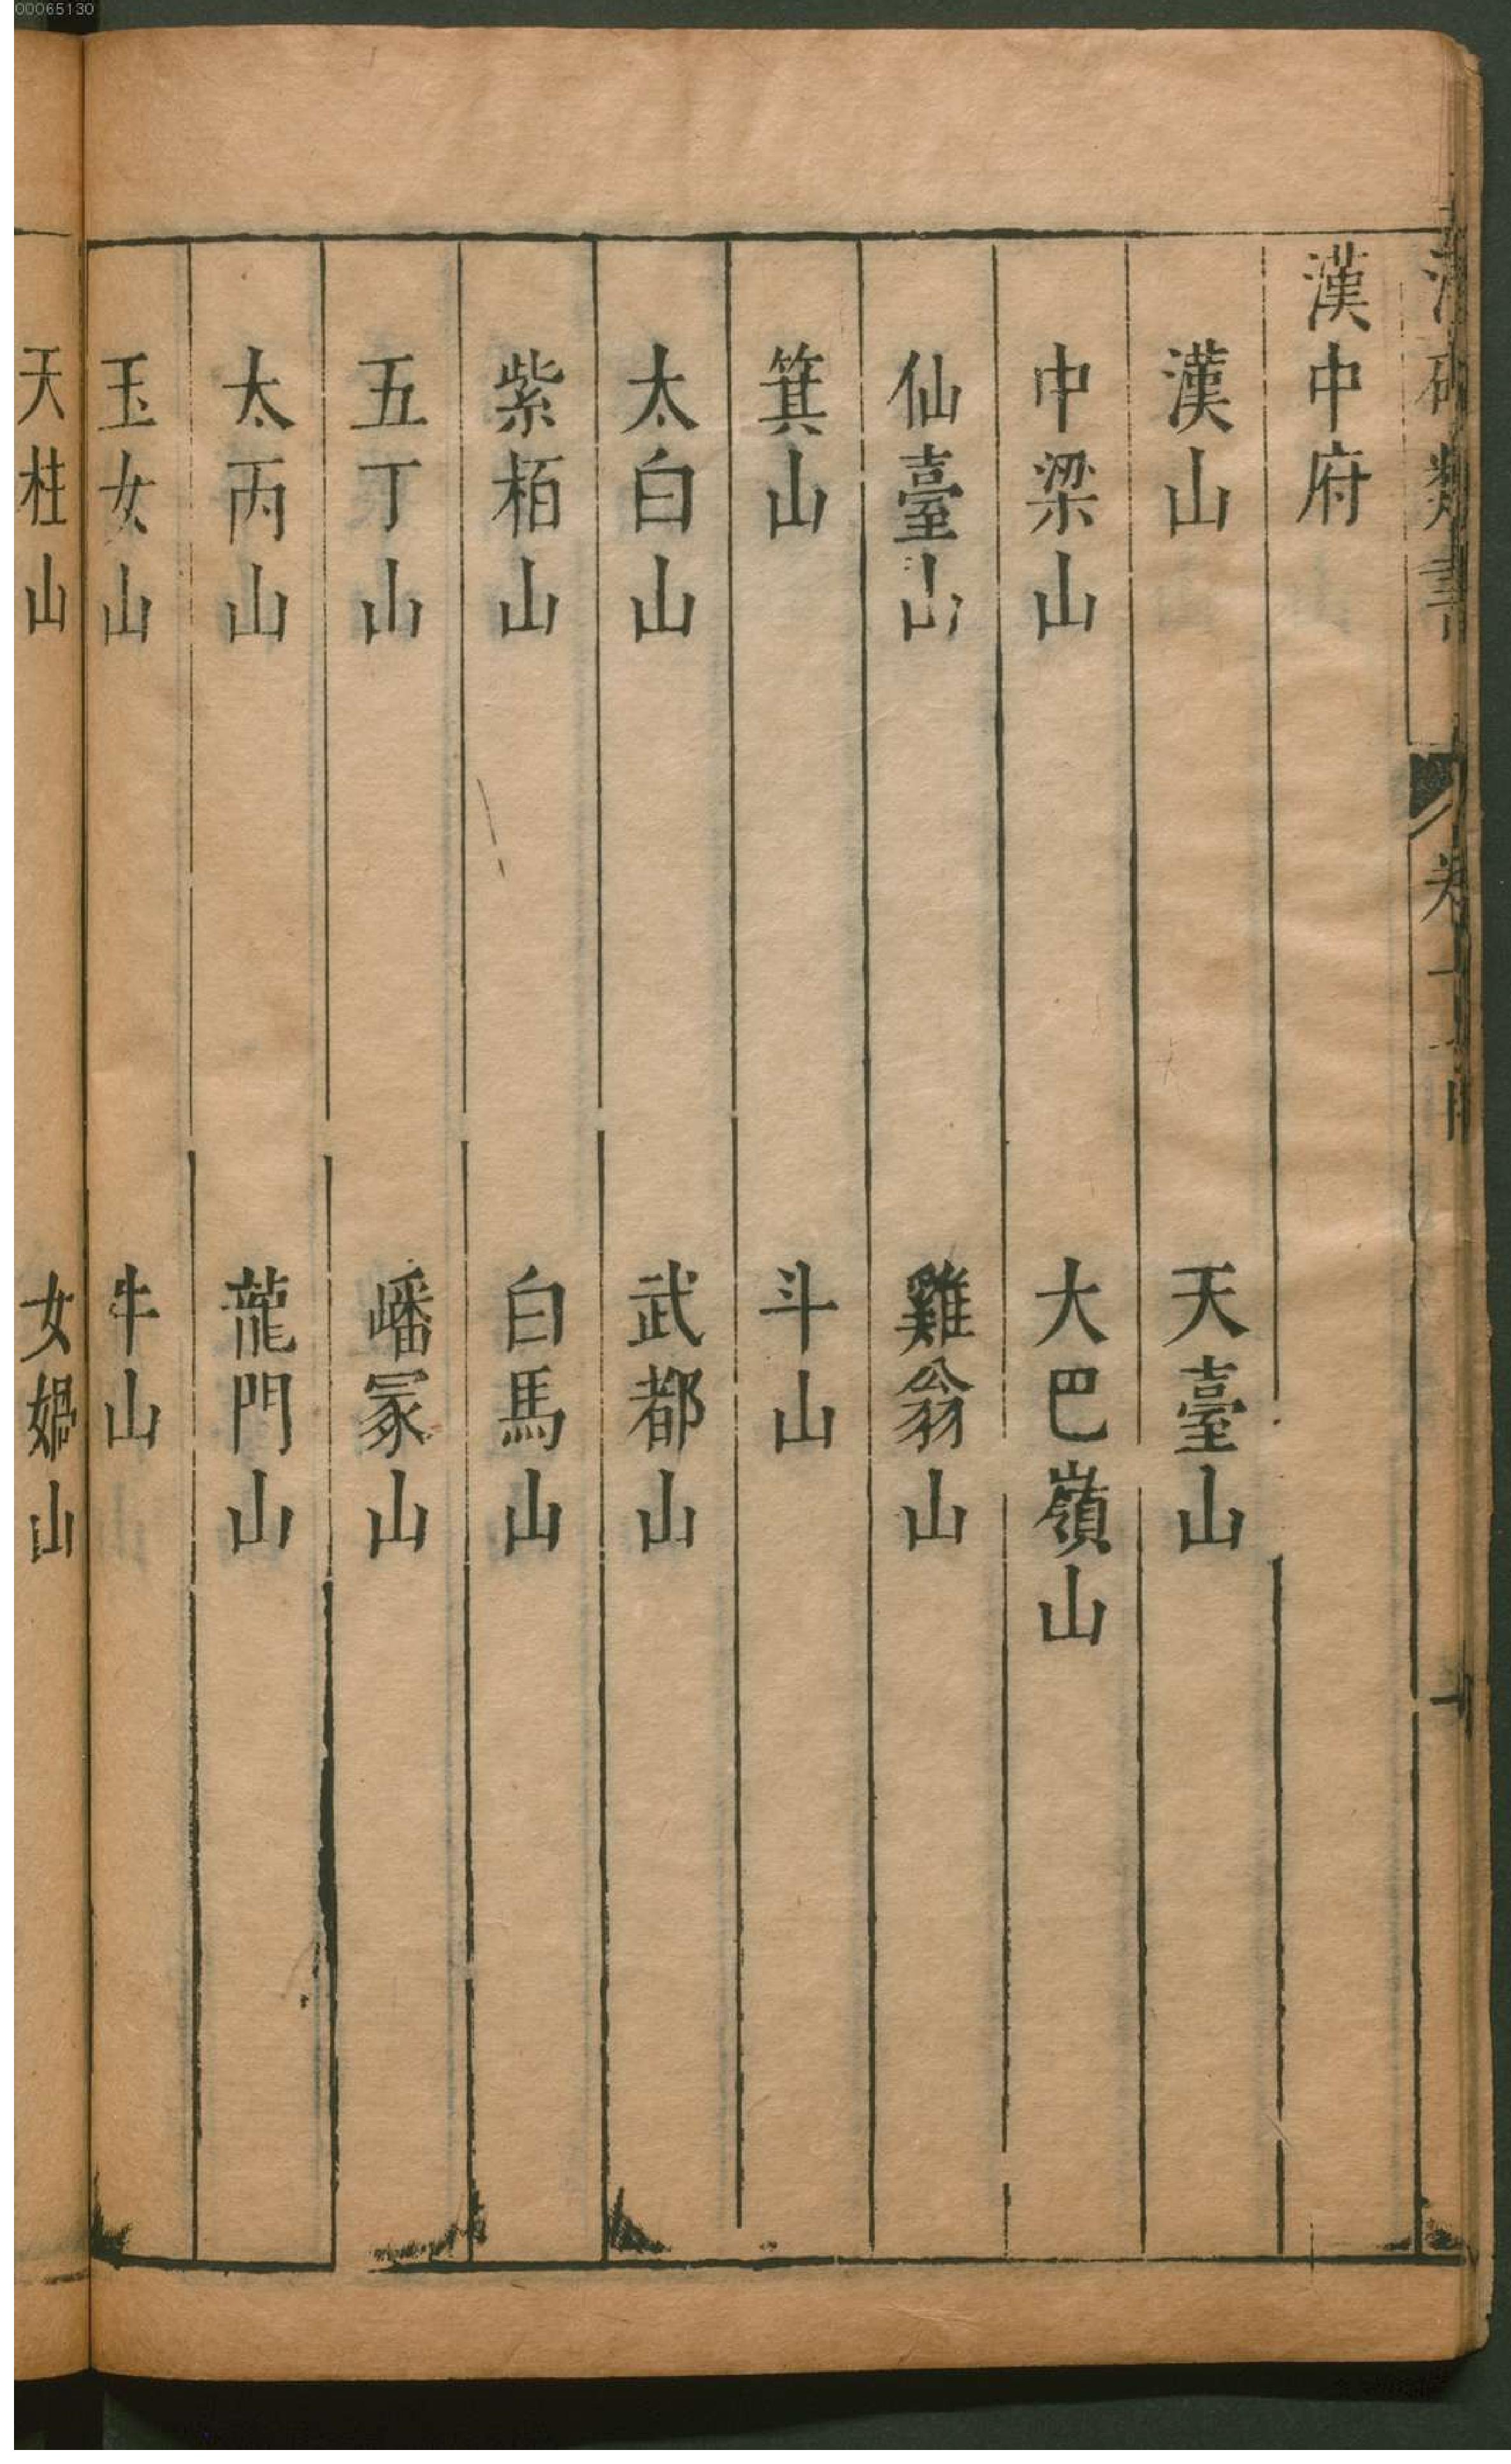 00065130
漢中府
漢山 天臺山
中梁山 大巴嶺山
仙臺山 雞翁山
箕山 斗山
太白山 武都山
紫栢山 白馬山
五丁山 嶓冢山
太丙山 龍門山
玉女山 牛山
天柱山 女媧山